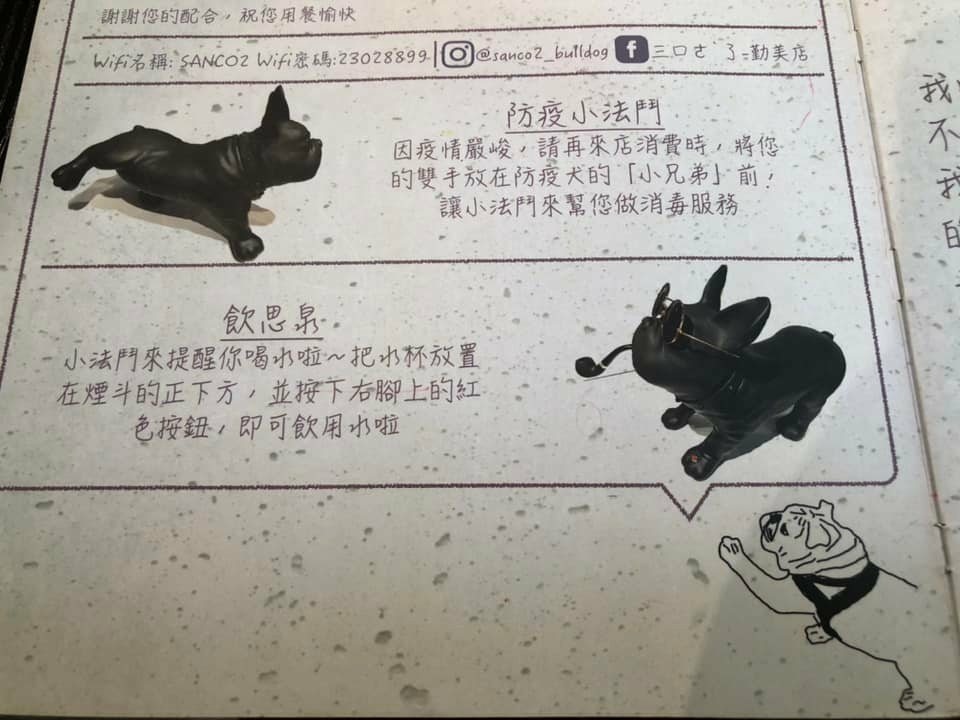 謝謝您的配合，祝您用餐愉快
Wifi名稱: SANCO2 Wifi密碼:23028899
@sanco2_bulldog
三口さ 了=勤美店
防疫小法鬥
因疫情嚴峻，請再來店消費時，將您
的雙手放在防疫犬的「小兄弟」前！
讓小法鬥來幫您做消毒服務
飲思泉
小法鬥來提醒你喝水啦~把水杯放置
在煙斗的正下方，並按下右腳上的紅
色按鈕，即可飲用水啦
我
不
我
的